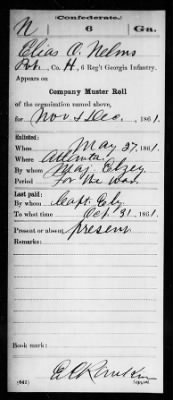 (Confederate.)
N 6 Ga.
Elias O. Nelms
Pvt., Co. H, 6 Reg't Georgia Infantry.
Appears on
Company Muster Roll
of the organization named above,
for Nov & Dec, 1861.
Enlisted:
When May 27, 1861.
Where Atlanta
By whom Maj. Elzey
Period For the War.
Last paid:
By whom Capt. Ely
To what time Oct. 31, 1861.
Present or absent present
Remarks:
Book mark:
(642)
Copyist.